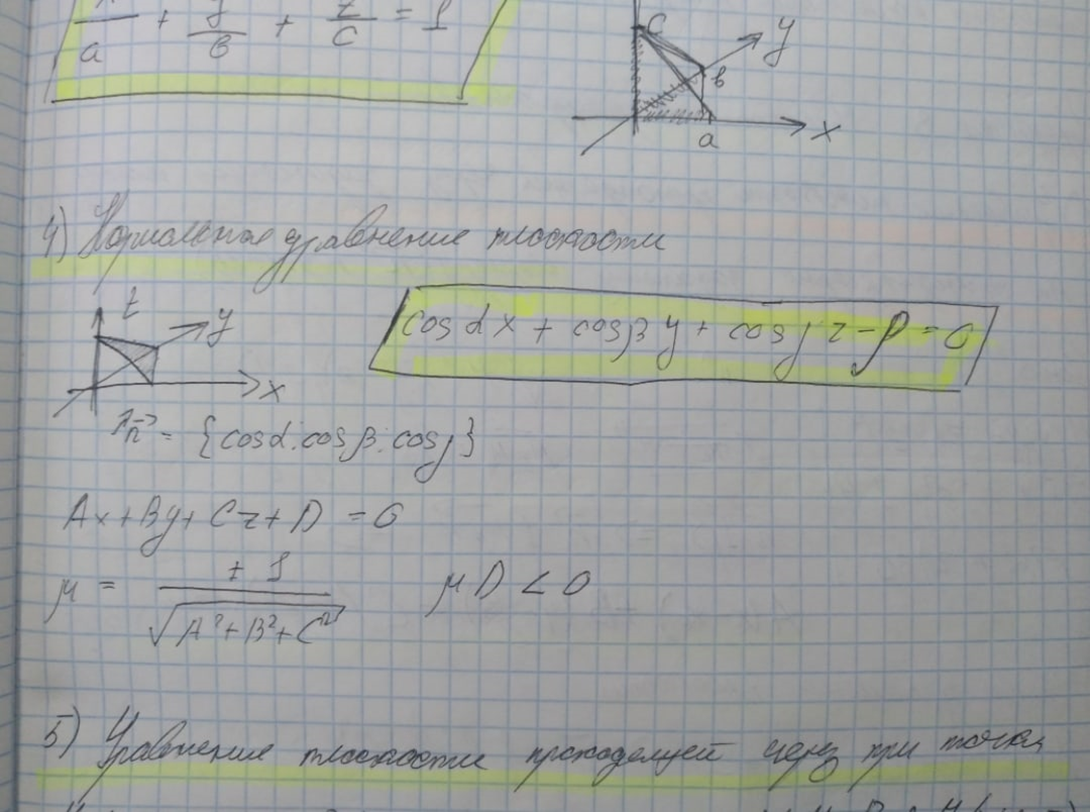 x/a + y/в + z/c = 1
C y в a x
4) Нормальное уравнение плоскости
z y x
cos α x + cos β y + cos γ z - p = 0
n⃗ = {cos α; cos β; cos γ}
Ax + By + Cz + D = 0
μ = ± 1 / √(A² + B² + C²) μ D < 0
5) Уравнение плоскости проходящей через три точки